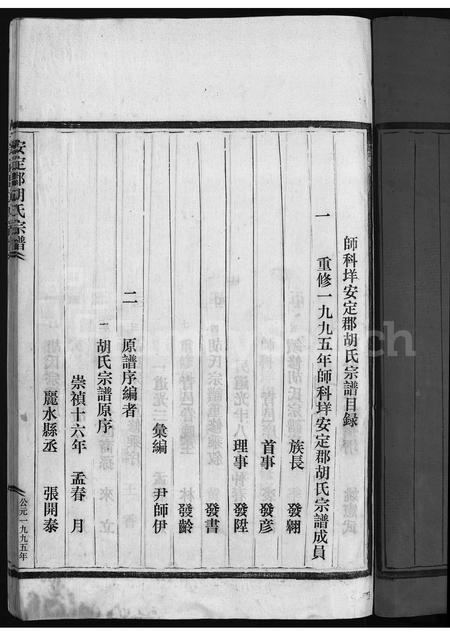 師科垟安定郡胡氏宗譜目録
一 重修一九九五年師科垟安定郡胡氏宗譜成員
族長 發翱
首事 發彦
理事 發陞
發書
發齡
彙編 尹師伊
二 原譜序編者
一 胡氏宗譜原序
崇禎十六年 孟春 月
麗水縣丞 張開泰
安定郡胡氏宗譜
公元一九九五年